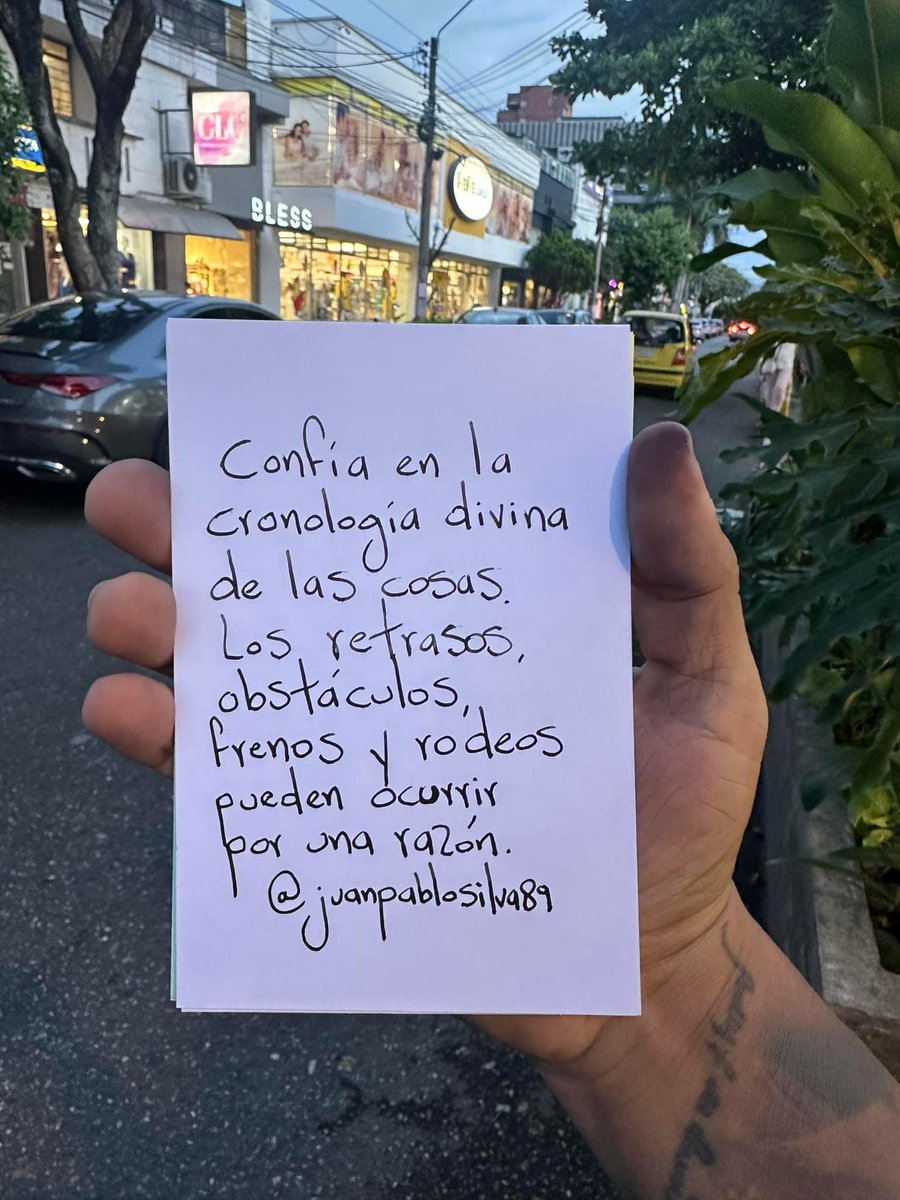 CLC
BLESS
Confía en la
cronología divina
de las cosas.
Los retrasos,
obstáculos,
frenos y rodeos
pueden ocurrir
por una razón.
@juanpablosilva89